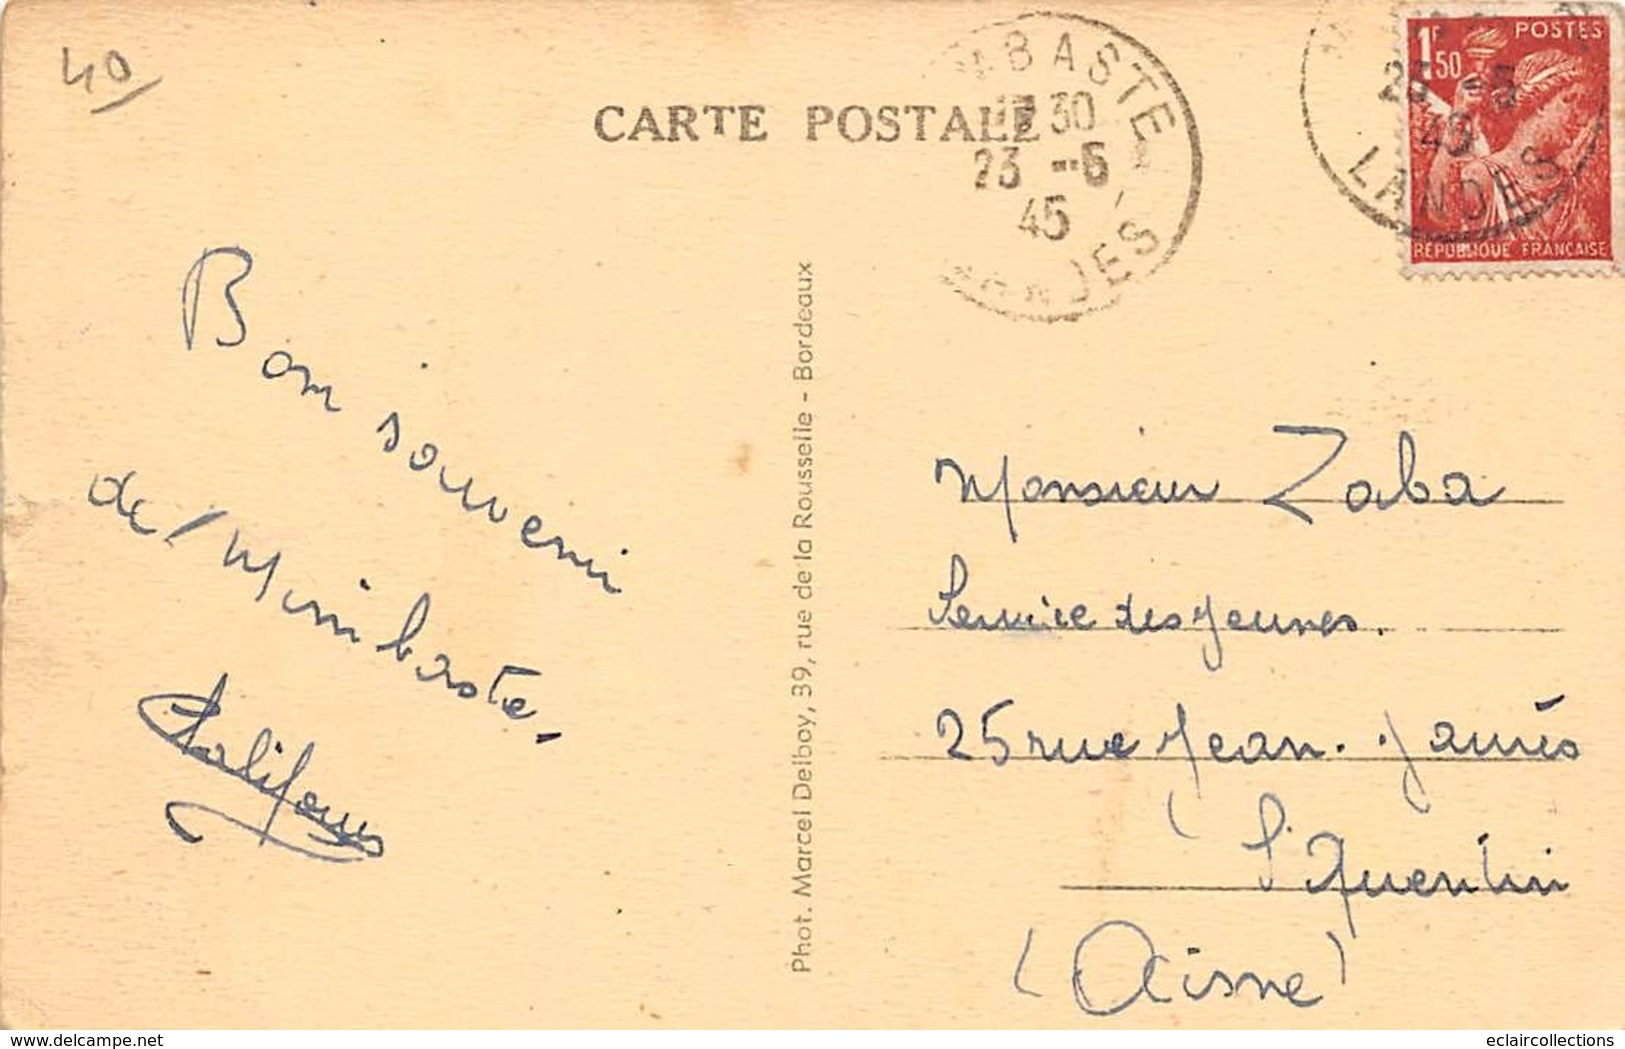 40
CARTE POSTALE
BASTE
30
23 -5
45
LANDES
1F50
POSTES
RÉPUBLIQUE FRANÇAISE
23 -5
45
LANDES
Bon souvenir
de Mimbaste.
Phot. Marcel Delboy, 39, rue de la Rousselle - Bordeaux
Monsieur Zaba
Service des Jeunes.
25 rue Jean. Jaurès
St Quentin
(Aisne)
www.delcampe.net
eclaircollections